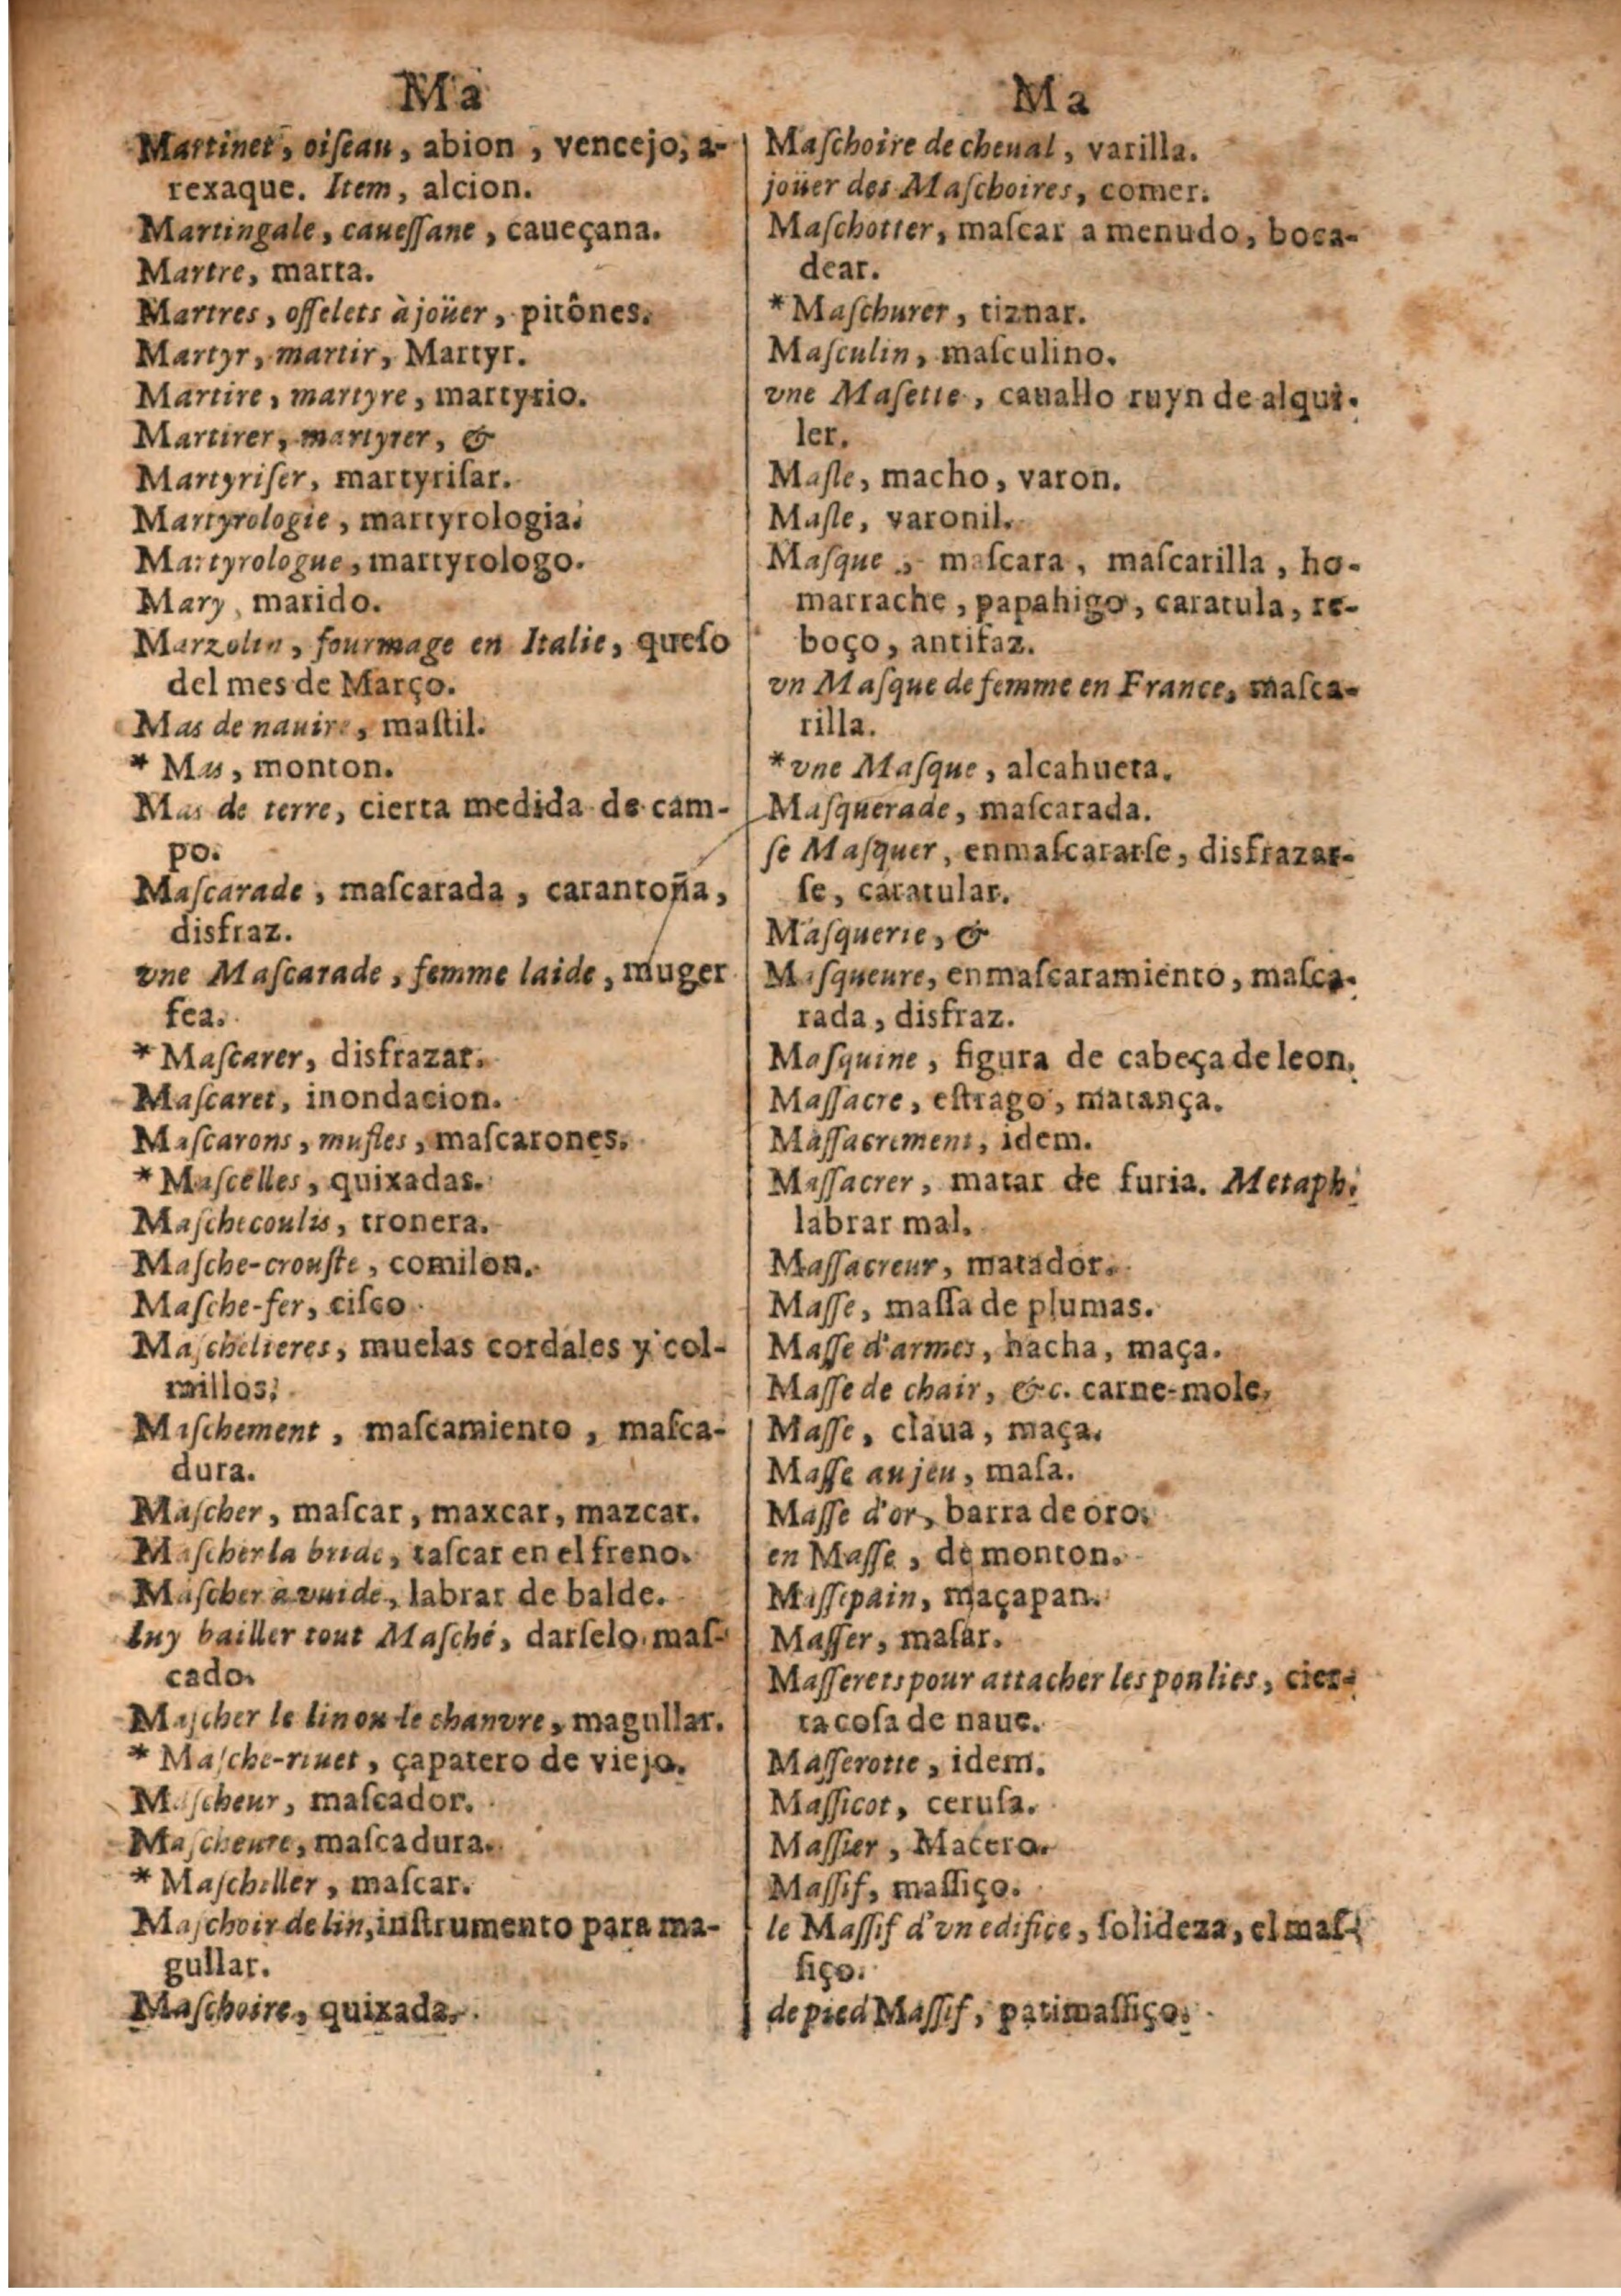 Ma
Martinet, oiſeau, abion, vencejo, a-
rexaque. Item, alcion.
Martingale, caueſſane, caueçana.
Martre, marta.
Martres, oſſelets à joüer, pitônes.
Martyr, martir, Martyr.
Martire, martyre, martyrio.
Martirer, martyrer, &
Martyriſer, martyriſar.
Martyrologie, martyrologia.
Martyrologue, martyrologo.
Mary, marido.
Marzolin, fourmage en Italie, queſo
del mes de Março.
Mas de nauire, maſtil.
* Mas, monton.
Mas de terre, cierta medida de cam-
po.
Maſcarade, maſcarada, carantoña,
disfraz.
vne Maſcarade, femme laide, muger
fea.
* Maſcarer, disfrazar.
Maſcaret, inondacion.
Maſcarons, mufles, maſcarones.
* Maſcelles, quixadas.
Maſchecoulis, tronera.
Maſche-crouſte, comilon.
Maſche-fer, ciſco.
Maſchelieres, muelas cordales y col-
millos.
Maſchement, maſcamiento, maſca-
dura.
Maſcher, maſcar, maxcar, mazcar.
Maſcher la bride, taſcar en el freno.
Maſcher à vuide, labrar de balde.
luy bailler tout Maſché, darſelo maſ-
cado.
Maſcher le lin ou le chanvre, magullar.
* Maſche-riuet, çapatero de viejo.
Maſcheur, maſcador.
Maſcheure, maſcadura.
* Maſchiller, maſcar.
Maſchoir de lin, inſtrumento para ma-
gullar.
Maſchoire, quixada.
Ma
Maſchoire de cheual, varilla.
joüer des Maſchoires, comer.
Maſchotter, maſcar a menudo, boca-
dear.
* Maſchurer, tiznar.
Maſculin, maſculino.
vne Maſette, cauallo ruyn de alqui-
ler.
Maſle, macho, varon.
Maſle, varonil.
Maſque, maſcara, maſcarilla, ho-
marrache, papahigo, caratula, re-
boço, antifaz.
vn Maſque de femme en France, maſca-
rilla.
* vne Maſque, alcahueta.
Maſquerade, maſcarada.
ſe Maſquer, enmaſcararſe, disfrazar-
ſe, caratular.
Maſquerie, &
Maſqueure, enmaſcaramiento, maſca-
rada, disfraz.
Maſquine, figura de cabeça de leon.
Maſſacre, eſtrago, matança.
Maſſacrement, idem.
Maſſacrer, matar de furia. Metaph.
labrar mal.
Maſſacreur, matador.
Maſſe, maſſa de plumas.
Maſſe d'armes, hacha, maça.
Maſſe de chair, &c. carne-mole.
Maſſe, claua, maça.
Maſſe au jeu, maſa.
Maſſe d'or, barra de oro.
en Maſſe, de monton.
Maſſepain, maçapan.
Maſſer, maſar.
Maſſerets pour attacher les poulies, cier-
ta coſa de naue.
Maſſerotte, idem.
Maſſicot, ceruſa.
Maſſier, Macero.
Maſſif, maſſiço.
le Maſſif d'vn edifice, ſolideza, el maſ-
ſiço.
de pied Maſſif, patimaſſiço.